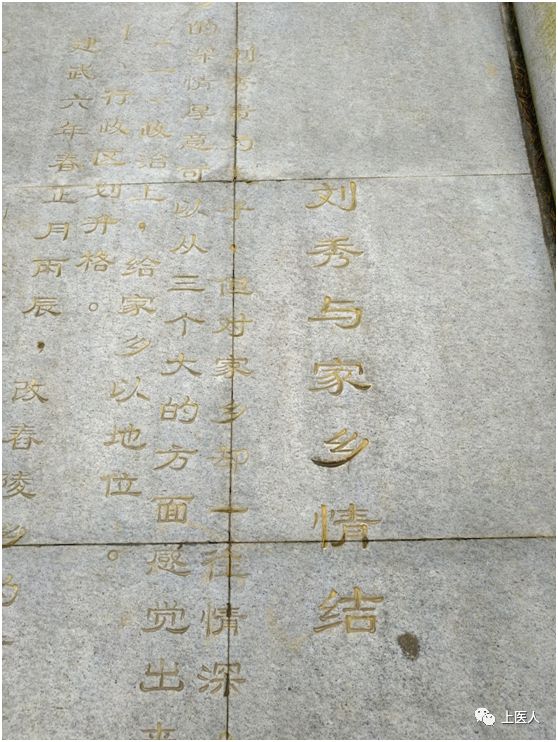 刘秀与家乡情结
刘秀贵为天子，但对家乡却一往情深
的深情厚意可以从三个大的方面感觉出来
一、政治上，给家乡以地位。
1、行政区划升格。
建武六年春正月丙辰，改舂陵乡
上医人